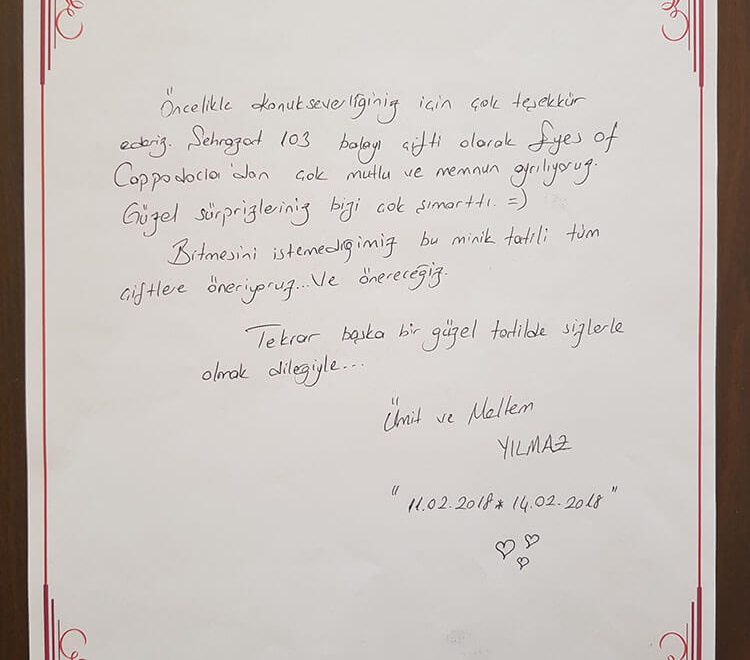 Öncelikle konukseverliğiniz için çok teşekkür
ederiz. Şehrazat 103 balayı çifti olarak Eyes of
Cappadocia'dan çok mutlu ve memnun ayrılıyoruz.
Güzel sürprizleriniz bizi çok şımarttı. =)
Bitmesini istemediğimiz bu minik tatili tüm
çiftlere öneriyoruz... Ve önereceğiz.
Tekrar başka bir güzel tatilde sizlerle
olmak dileğiyle...
Ümit ve Meltem
YILMAZ
" 11.02.2018 * 14.02.2018 "